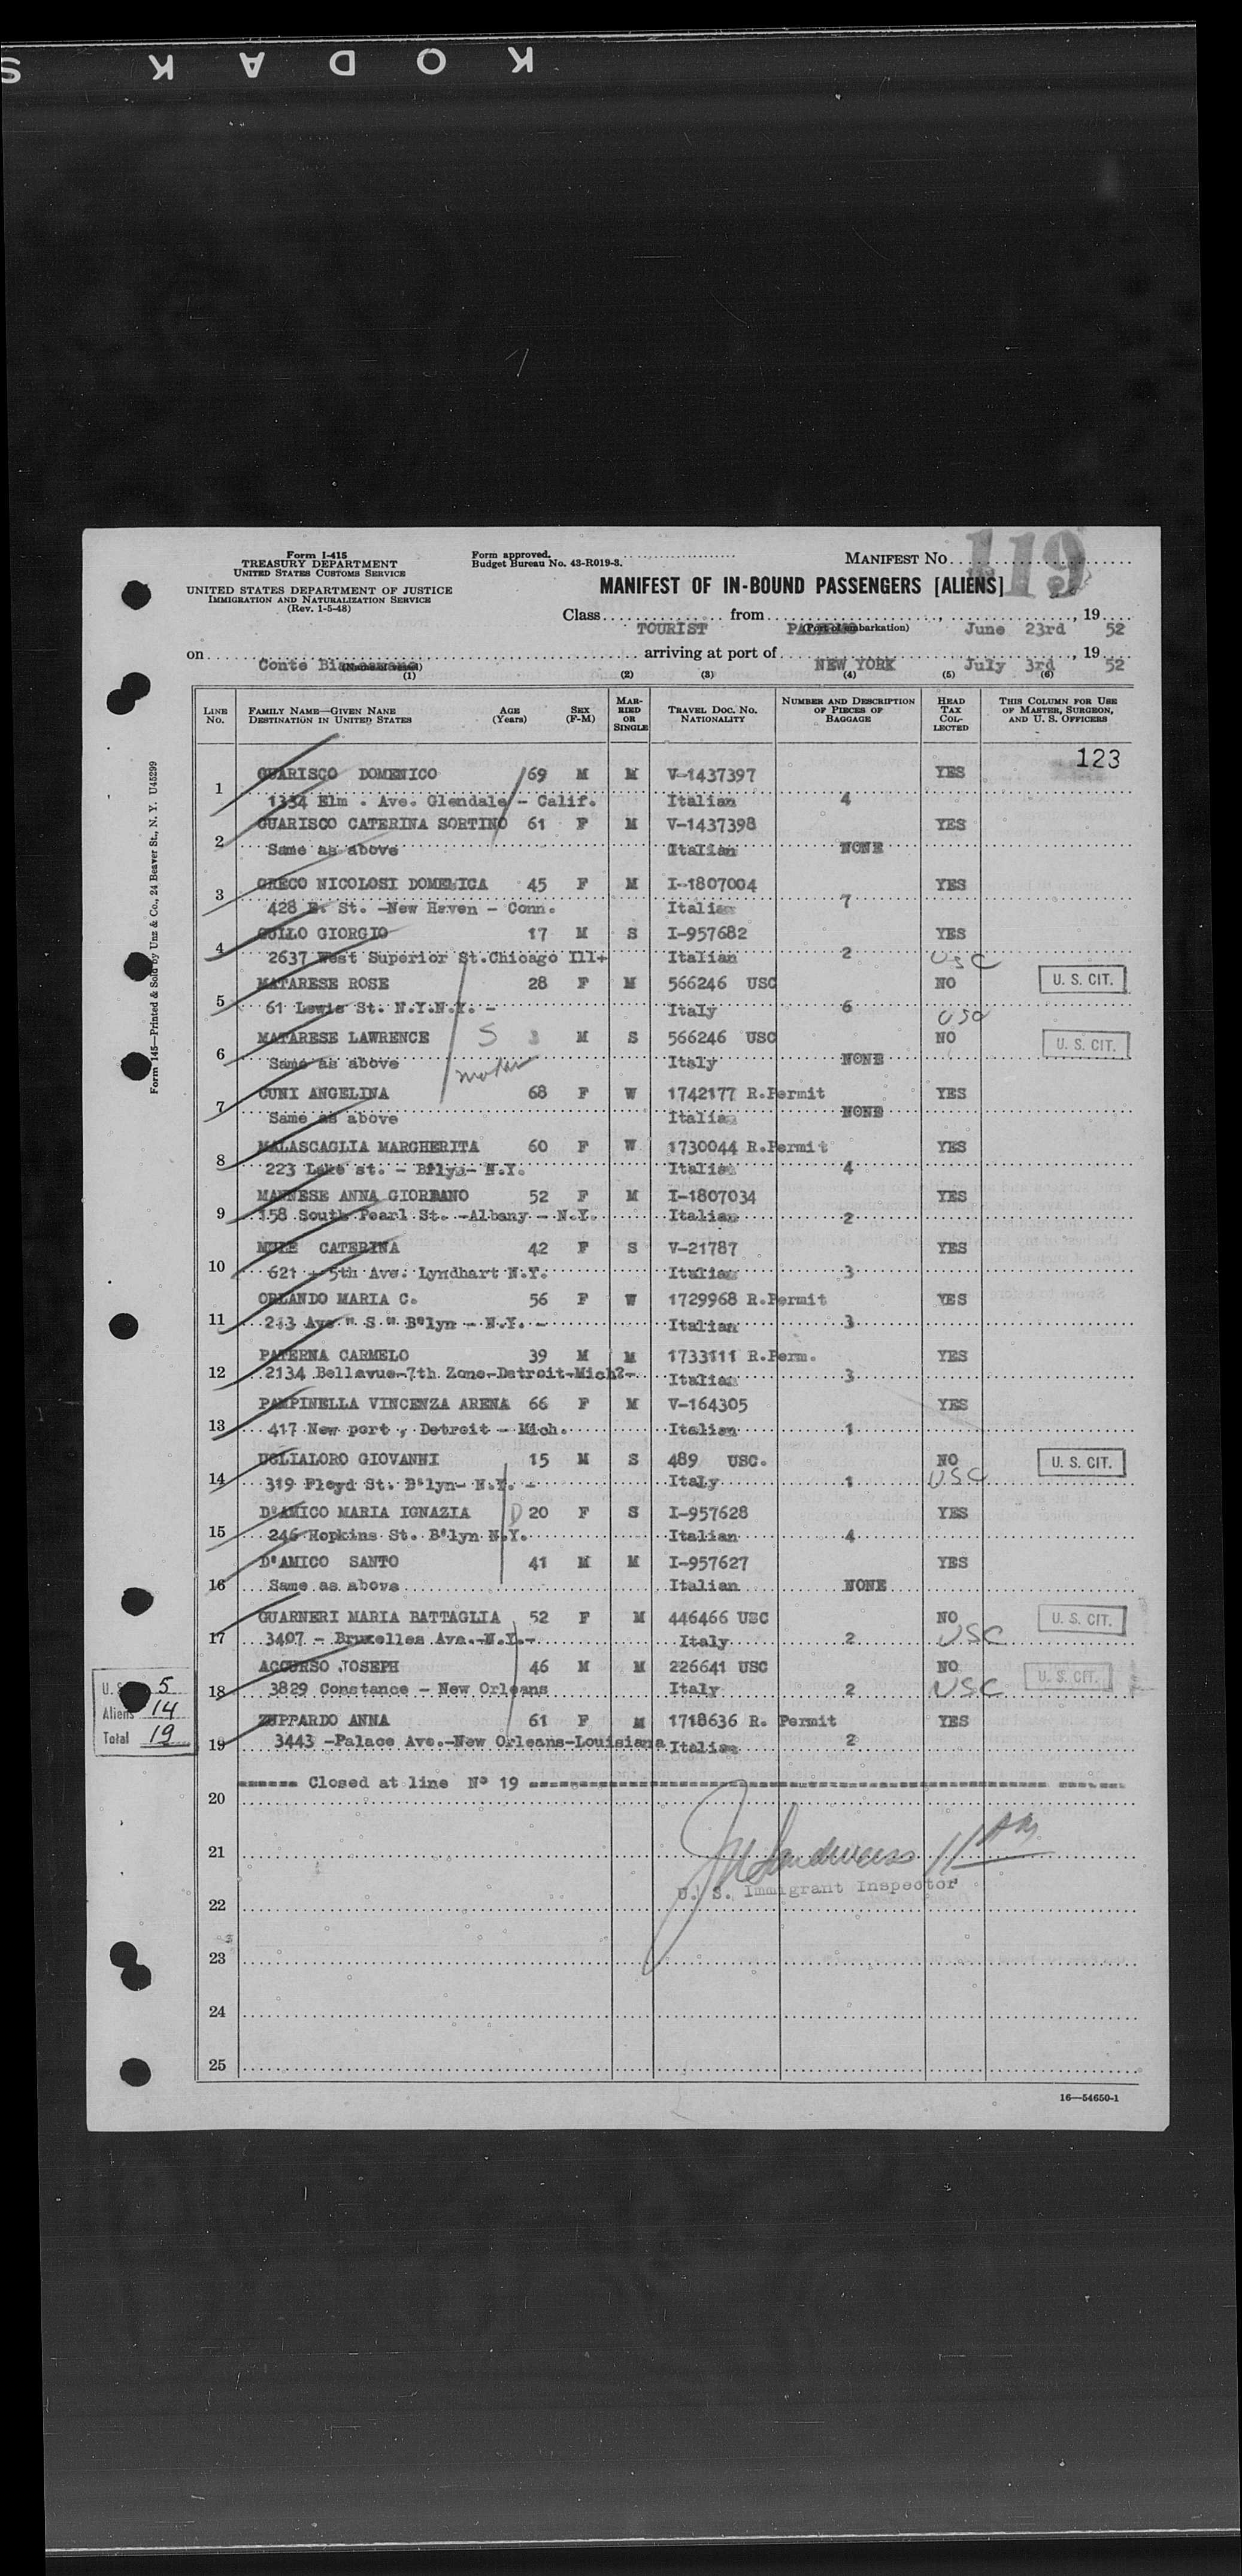 KODAK S
Form I-415
TREASURY DEPARTMENT
UNITED STATES CUSTOMS SERVICE
UNITED STATES DEPARTMENT OF JUSTICE
IMMIGRATION AND NATURALIZATION SERVICE
(Rev. 1-5-48)
Form approved.
Budget Bureau No. 43-R019-3.
MANIFEST NO. 119
MANIFEST OF IN-BOUND PASSENGERS [ALIENS]
Class TOURIST from (Port of embarkation), June 23rd, 19 52
on Conte (Name of vessel) arriving at port of NEW YORK July 3rd, 19 52
(1) (2) (3) (4) (5) (6)
LINE NO. FAMILY NAME—GIVEN NAME DESTINATION IN UNITED STATES AGE (Years) SEX (F-M) MARRIED OR SINGLE TRAVEL DOC. NO. NATIONALITY NUMBER AND DESCRIPTION OF PIECES OF BAGGAGE HEAD TAX COLLECTED THIS COLUMN FOR USE OF MASTER, SURGEON, AND U. S. OFFICERS
123
1 GUARISCO DOMENICO 69 M M V-1437397 YES
1334 Elm . Ave. Glendale - Calif. Italian 4
2 GUARISCO CATERINA SORTINO 61 F M V-1437398 YES
Same as above Italian NONE
3 GRECO NICOLOSI DOMENICA 45 F M I-1807004 YES
428 E. St. -New Haven - Conn. Italian 7
4 GULLO GIORGIO 17 M S I-957682 YES
2637 West Superior St.Chicago Ill+ Italian 2 USC
5 MATARESE ROSE 28 F M 566246 USC NO U. S. CIT.
61 Lewis St. N.Y.N.Y. - Italy 6 USC
6 MATARESE LAWRENCE S 3 M S 566246 USC NO U. S. CIT.
Same as above Italy NONE
7 CUNI ANGELINA 68 F W 1742177 R.Permit YES
Same as above Italian NONE
8 MALASCAGLIA MARGHERITA 60 F W 1730044 R.Permit YES
223 Lake st. - Bflyn- N.Y. Italian 4
9 MANNESE ANNA GIORDANO 52 F M I-1807034 YES
158 South Pearl St. -Albany - N.Y. Italian 2
10 MULE CATERINA 42 F S V-21787 YES
621 - 5th Ave. Lyndhart N.Y. Italian 3
11 ORLANDO MARIA C. 56 F W 1729968 R.Permit YES
213 Ave " S " B'lyn - N.Y. - Italian 3
12 PATERNA CARMELO 39 M M 1733111 R.Perm. YES
2134 Bellavue-7th Zone-Detroit-Mich?- Italian 3
13 PAMPINELLA VINCENZA ARENA 66 F M V-164305 YES
417 New port , Detroit - Mich. Italian 1
14 UGLIALORO GIOVANNI 15 M S 489 USC. NO U. S. CIT.
319 Floyd St. B'lyn- N.Y. - Italy 1 USC
15 D'AMICO MARIA IGNAZIA 20 F S I-957628 YES
246 Hopkins St. B'lyn N.Y. Italian 4
16 D'AMICO SANTO 41 M M I-957627 YES
Same as above Italian NONE
17 GUARNERI MARIA BATTAGLIA 52 F M 446466 USC NO U. S. CIT.
3407 - Bruxelles Ave.-N.Y.- Italy 2 USC
18 ACCURSO JOSEPH 46 M M 226641 USC NO U. S. CIT.
3829 Constance - New Orleans Italy 2 USC
19 ZUPPARDO ANNA 61 F M 1718636 R. Permit YES
3443 -Palace Ave.-New Orleans-Louisiana Italian 2
Closed at line Nº 19
20
21
11 AM
U. S. Immigrant Inspector
22
23
24
25
U. S. 5
Aliens 14
Total 19
Form 145—Printed & Sold by Unz & Co., 24 Beaver St., N. Y. U45299
16—54650-1